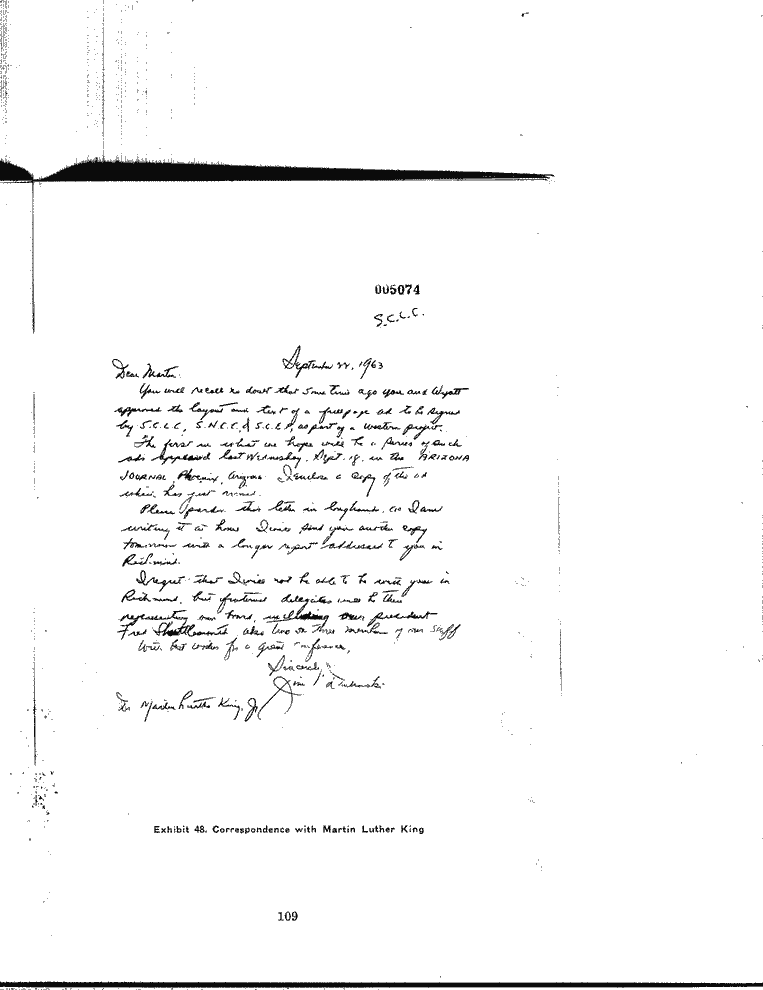 005074
S.C.L.C.
September 22, 1963
Dear Martin:
You will recall no doubt that some time ago you and Wyatt
approved the layout and text of a full page ad to be signed
by S.C.L.C., S.N.C.C. & S.C.E.F., as part of a western project.
The first in what we hope will be a series of such
ads appeared last Wednesday, Sept. 18, in the ARIZONA
JOURNAL, Phoenix, Arizona. I enclose a copy of the ad
which has just arrived.
Please pardon this letter in longhand, as I am
writing it at home. I will send you another copy
tomorrow with a longer report addressed to you in
Richmond.
I regret that I will not be able to be with you in
Richmond, but fraternal delegates will be there
representing our board, including our president
Fred Shuttlesworth, also two or three members of our staff
With best wishes for a great conference,
Sincerely,
Jim Dombrowski
Dr Martin Luther King, Jr
Exhibit 48. Correspondence with Martin Luther King
109